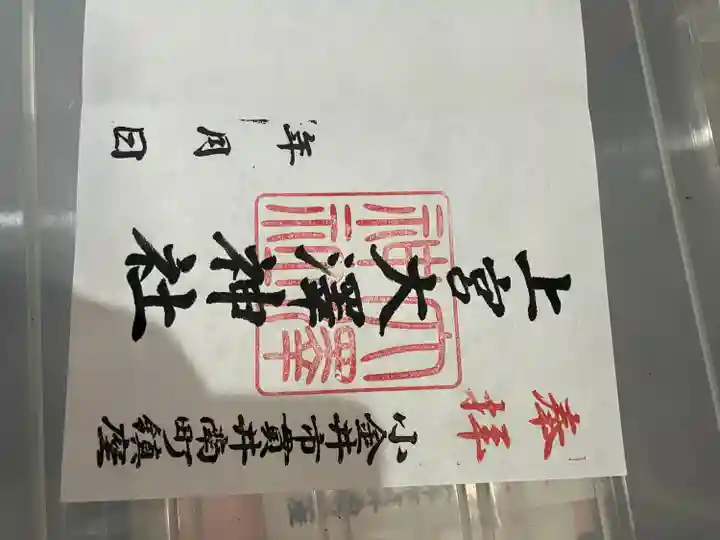 奉拝
小金井市貫井南町鎮座
上宮大澤神社
大澤神社
年 月 日